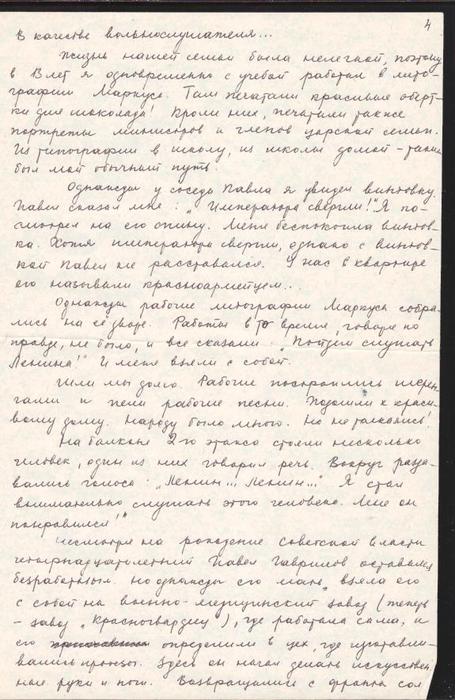 4
в качестве вольнослушателя...
Жизнь нашей семьи была нелегкой, поэтому
в 13 лет я одновременно с учебой работал в лито-
графии Маркуса. Там печатали красивые оберт-
ки для шоколада! Кроме них, печатали также
портреты министров и членов царской семьи.
Из типографии в школу, из школы домой - таков
был мой обычный путь.
Однажды у соседа Павла я увидел винтовку.
Павел сказал мне: „Императора свергли!" Я по-
смотрел на его спину. Меня беспокоила винтов-
ка. Хотя императора свергли, однако с винтов-
кой Павел не расставался. У нас в квартире
его называли красноармейцем...
Однажды рабочие литографии Маркуса собра-
лись на её дворе. Работы в то время, говоря по
правде, не было, и все сказали: „Пойдем слушать
Ленина!" И меня взяли с собой.
Шли мы долго. Рабочие построились шерен-
гами и пели рабочие песни. Подошли к краси-
вому дому. Народу было много. Но не толкались!
На балконе 2-го этажа стояли несколько
человек, один из них говорил речь. Вокруг разда-
вались голоса: „Ленин... Ленин..." Я стал
внимательно слушать этого человека. Мне он
понравился!"
Несмотря на рождение Советской власти
четырнадцатилетний Павел Гаврилов оставался
безработным. Но однажды его мать взяла его
с собой на военно-медицинский завод (теперь
- завод „Красногвардеец"), где работала сама, и
его определили в цех, где изготавли-
вались протезы. Здесь он начал делать искусствен-
ные руки и ноги. Возвращались с фронта сол